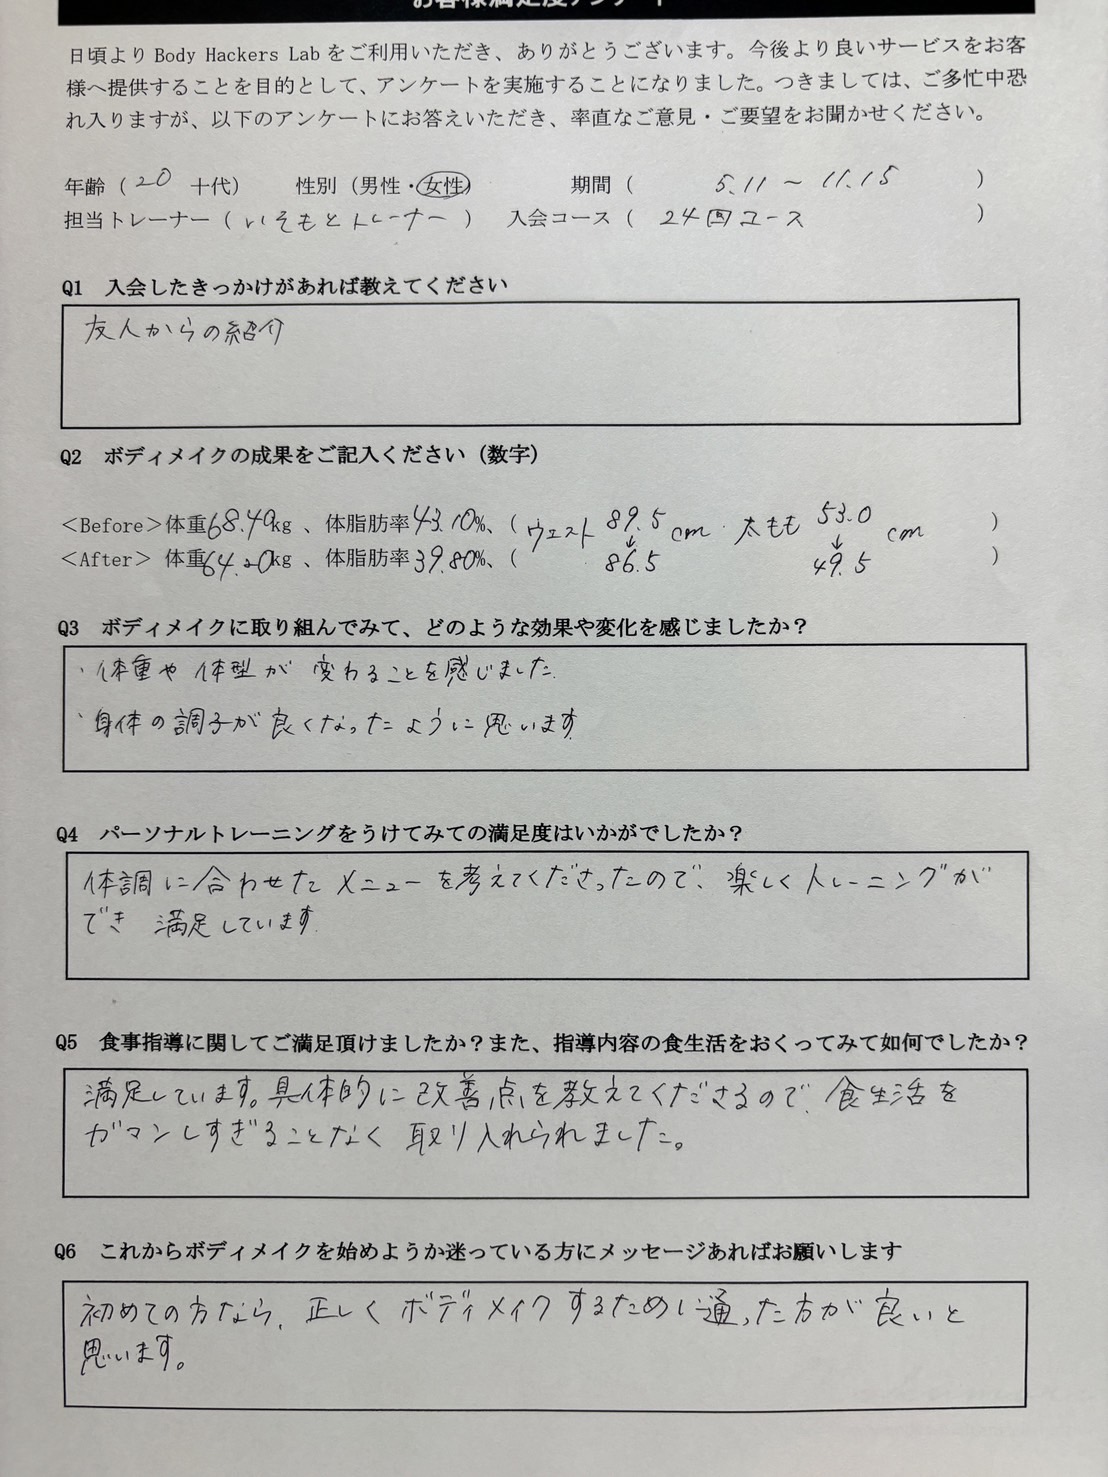 お客様満足度アンケート
日頃より Body Hackers Lab をご利用いただき、ありがとうございます。今後より良いサービスをお客
様へ提供することを目的として、アンケートを実施することになりました。つきましては、ご多忙中恐
れ入りますが、以下のアンケートにお答えいただき、率直なご意見・ご要望をお聞かせください。
年齢（20 十代） 性別（男性・女性） 期間（ 5.11 ～ 11.15 ）
担当トレーナー（いそもとトレーナー） 入会コース（ 24回コース ）
Q1 入会したきっかけがあれば教えてください
友人からの紹介
Q2 ボディメイクの成果をご記入ください（数字）
＜Before＞体重68.40kg 、体脂肪率43.10%、（ウエスト 89.5 cm ・ 太もも 53.0 cm ）
＜After＞ 体重64.20kg 、体脂肪率39.80%、（ ↓86.5 ↓49.5 ）
Q3 ボディメイクに取り組んでみて、どのような効果や変化を感じましたか？
・体重や体型が変わることを感じました.
・身体の調子が良くなったように思います
Q4 パーソナルトレーニングをうけてみての満足度はいかがでしたか？
体調に合わせたメニューを考えてくださったので、楽しくトレーニングが
でき 満足しています.
Q5 食事指導に関してご満足頂けましたか？また、指導内容の食生活をおくってみて如何でしたか？
満足しています。具体的に改善点を教えてくださるので、食生活を
ガマンしすぎることなく 取り入れられました。
Q6 これからボディメイクを始めようか迷っている方にメッセージあればお願いします
初めての方なら、正しくボディメイクするために通った方が良いと
思います。